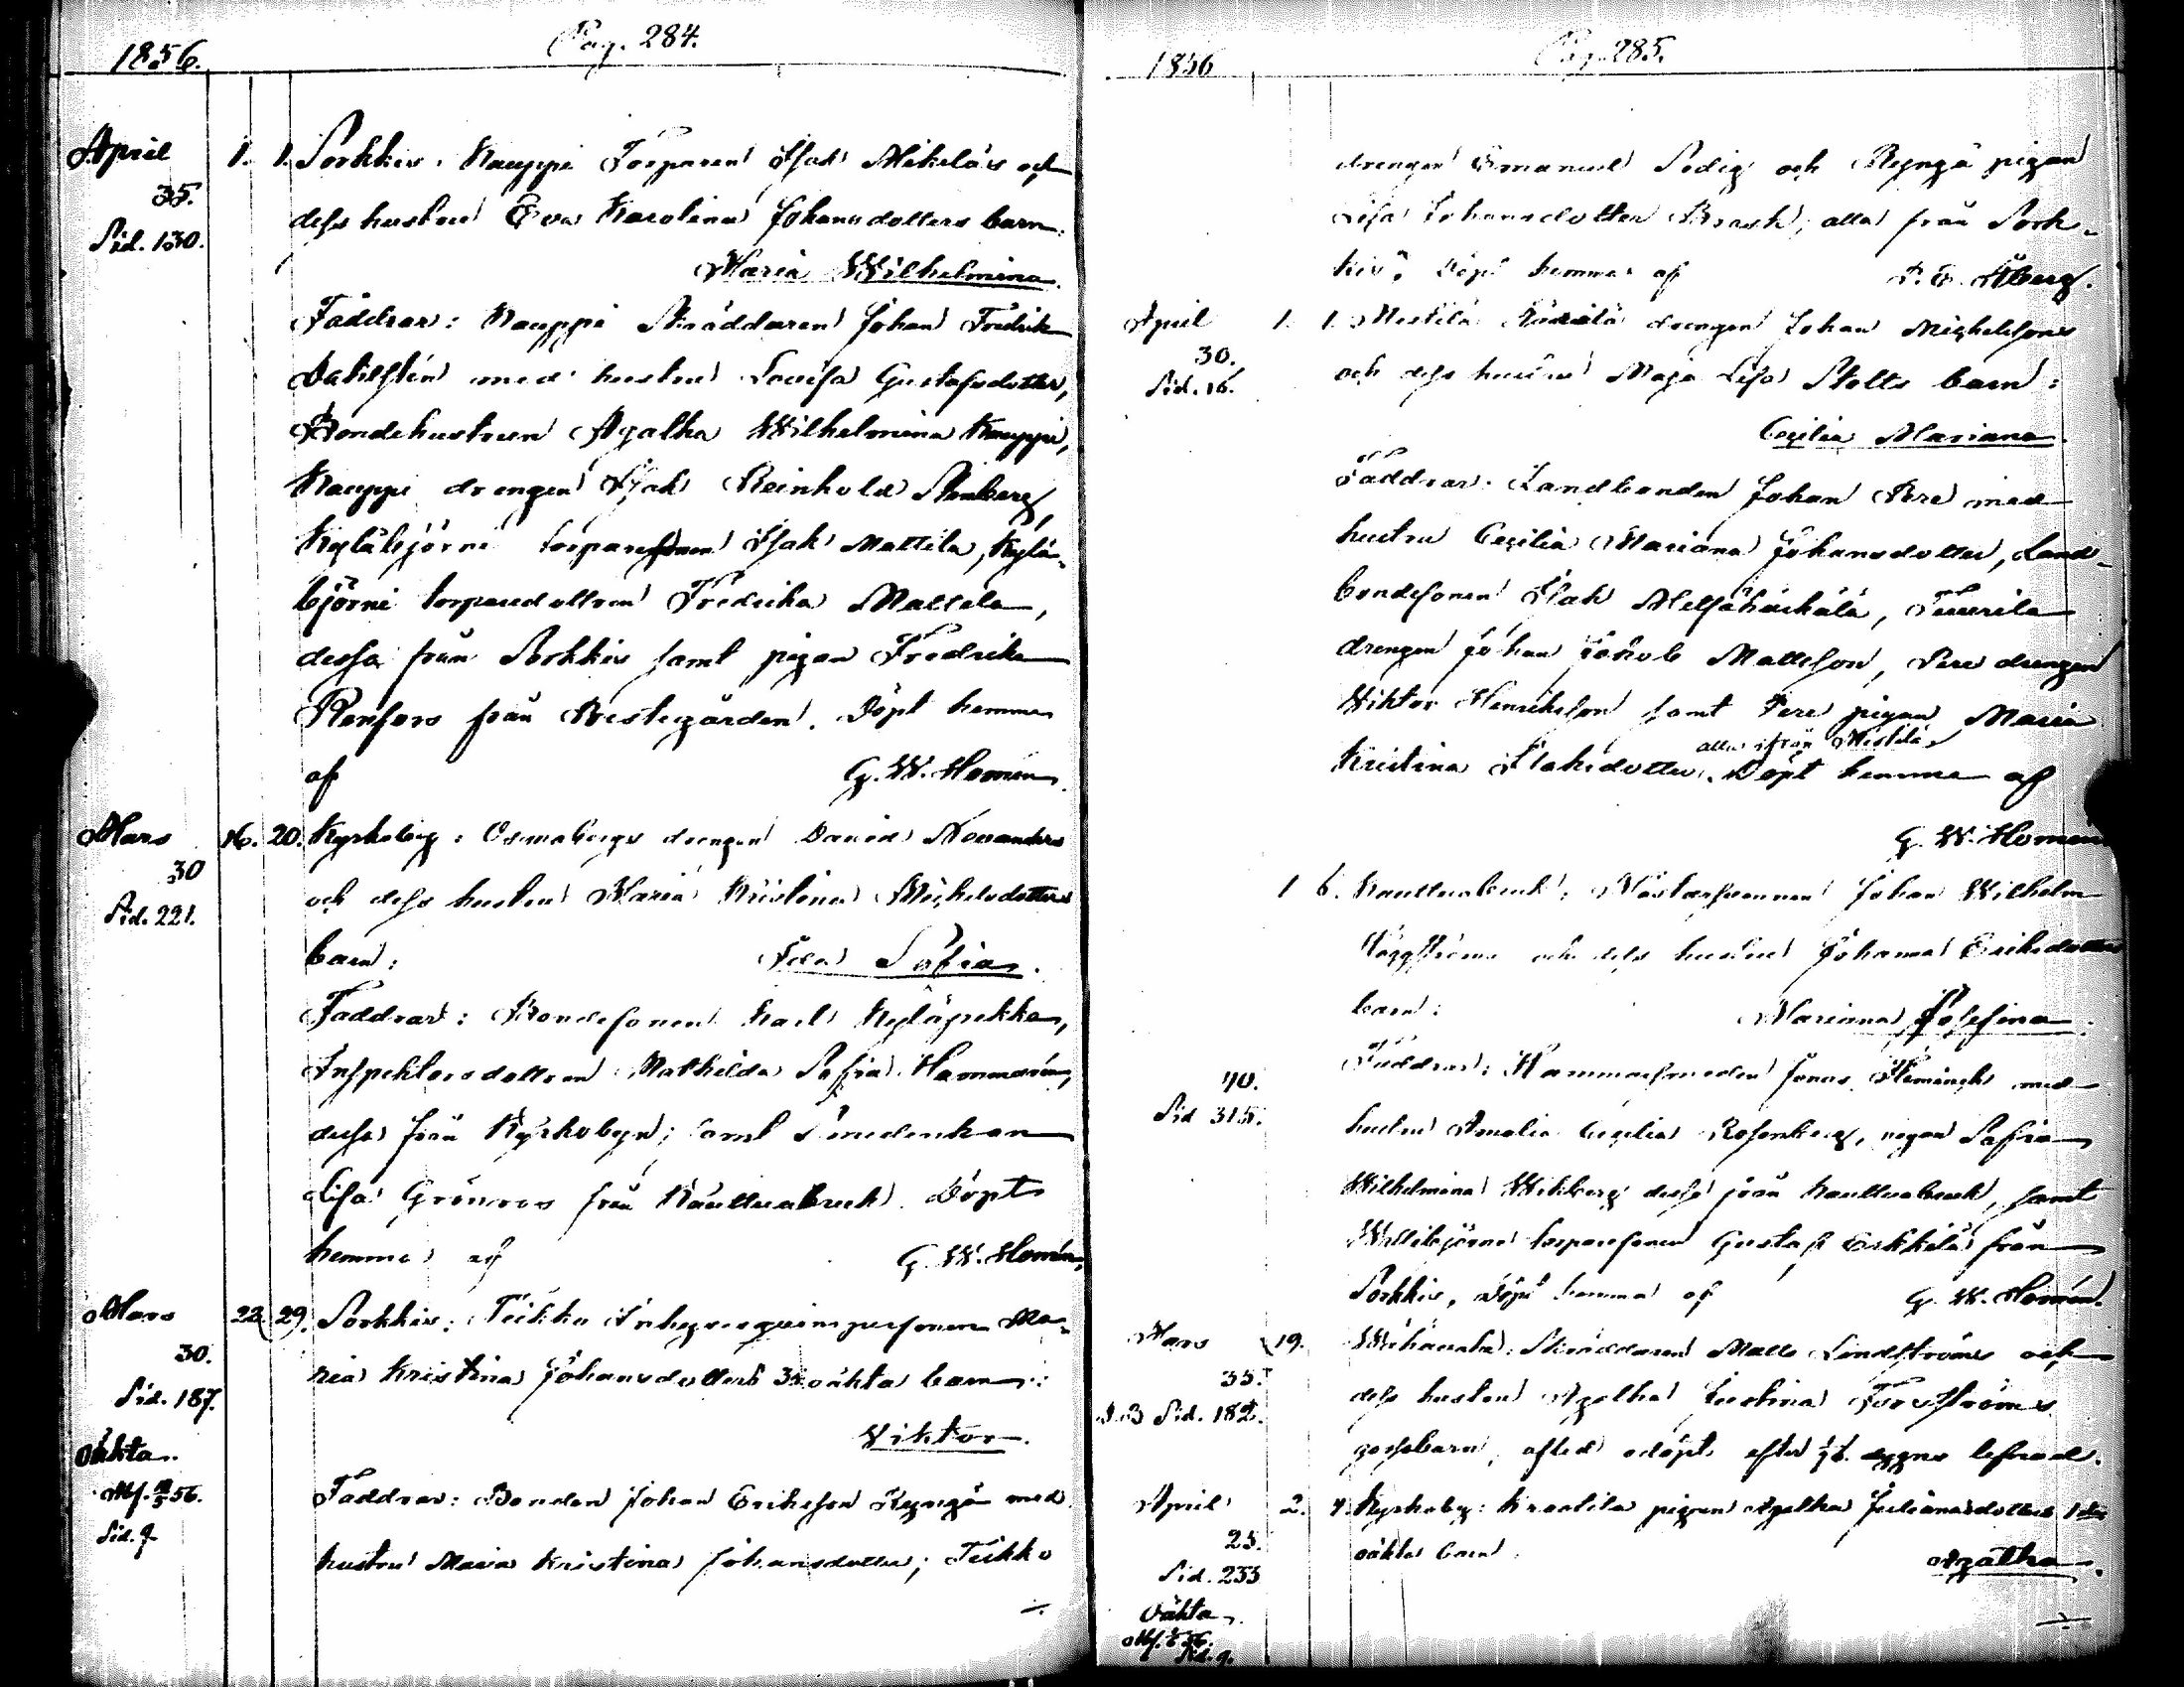 1856.
Pag. 284.
April 1. 1. Sorkkis: Kauppi Torparen Isak Mikeläs och
35.
Sid. 130. dess hustru Eva Karolina Johansdotters barn:
Maria Wilhelmina.
Faddrar: Kauppi Skräddaren Johan Fredrik
Dahlsten med hustru Lovisa Gustafsdotter,
Bondehustrun Agatha Wilhelmina Kauppi,
Kauppi drengen Isak Reinhold Stenberg,
Kyläbjörni torparesonen Isak Mattila, Kylä-
björni torparedottren Fredrika Mattila,
dessa från Sorkkis samt pigan Fredrika
Renfors från Prestegården. Döpt hemma
af G. W. Homén.
Mars 16. 20. Kyrkoby: Osmabergs drengen David Novanders
30
Sid. 221. och dess hustru Maria Kristina Michelsdotters
barn: Ida Sofia.
Faddrar: Bondesonen Karl Kyläpekka,
Inspektorsdottren Mathilda Sofia Hammarén,
dessa från Kyrkobyn; samt Smedenkan
Lisa Grönroos från Kauttuabruk. Döpt
hemma af G. W. Homén.
Mars 22. 29. Sorkkis: Teikko Inhyses qvinspersonen Ma-
30.
Sid. 187. ria Kristina Johansdotters 3 oäkta barn:
Oäkta. Viktor.
Sid. 9. Faddrar: Bonden Johan Eriksson Ryngö med
hustru Maria Kristina Johansdotter; Teikko
1856
Pag. 285.
drengen Emanuel Sedig och Ryngö pigan
Lisa Johansdotter Brask; alla från Sork-
kis. Döpt hemma af Åberg.
April 1. 1. Mestilä drengen Johan Michelssons
30.
Sid. 16. och dess hustru Maja Lisa Stolts barn:
Cecilia Mariana.
Faddrar: Landbonden Johan Pere med
hustru Cecilia Mariana Johansdotter, Land-
bondesonen Isak Metsähäkälä, Tuurila
drengen Johan Jakob Matteson, Pere drengen
Wiktor Henriksson samt Pere pigan Maria
alla ifrån Mestilä
Kristina Isaksdotter. Döpt hemma af
G. W. Homén
1 6. Kauttuabruk: Mästarsvennen Johan Wilhelm
Häggströms och dess hustru Johanna Eriksdotters
barn: Mariana Josefina.
Faddrar: Hammarsmeden Jonas Fleminch med
40.
Sid 315. hustru Amalia Cecilia Rosenberg, pigan Sofia
Wilhelmina Wekberg dessa från Kauttuabruk, samt
torparesonen Gustaf Erkkilä från
Sorkkis. Döpt hemma af G. W. Homén.
Mars 19. Skräddaren Matts Lindströms och
35.
Sid. 182. dess hustru Agatha Justina Forsströms
gossebarn, afled odöpt efter dygns lefnad.
April 2. 4. Kyrkoby: Kraatila pigan Agatha Julianasdotters 1sta
25.
Sid. 233 oäkta barn: Agatha.
Oäkta.
Sid. 9.